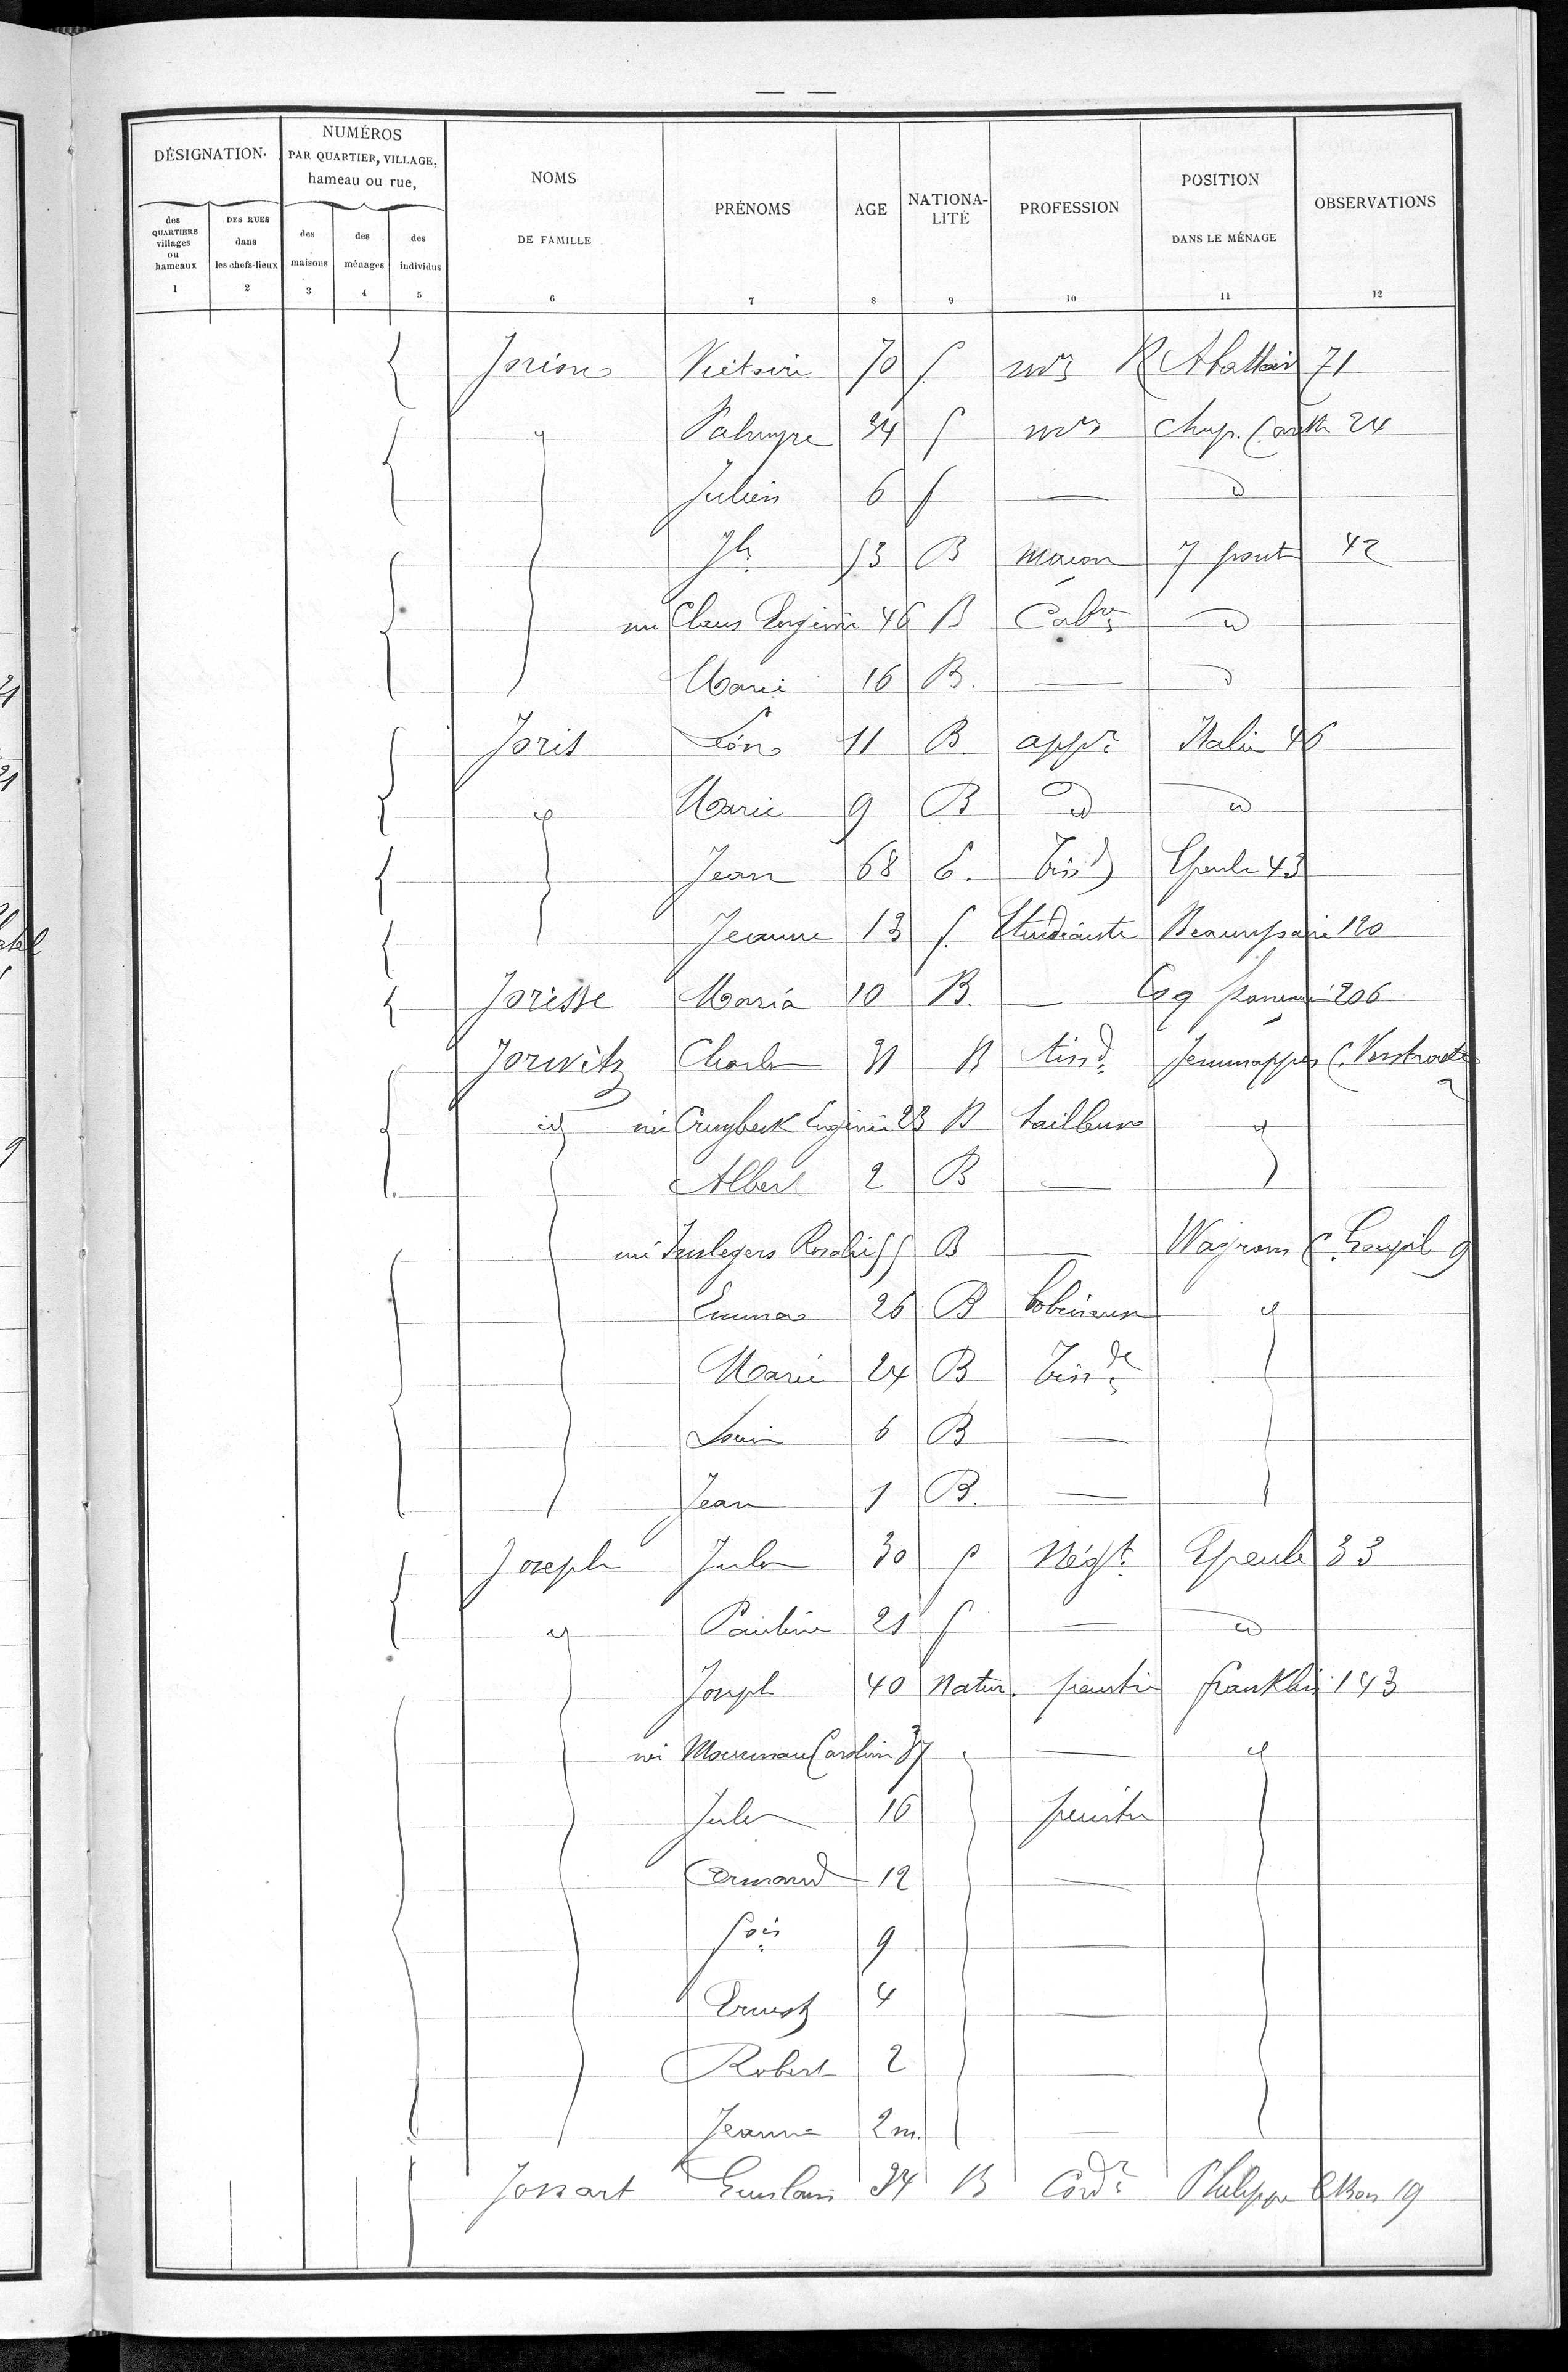 DÉSIGNATION.
NUMÉROS
PAR QUARTIER, VILLAGE,
hameau ou rue,
NOMS
DE FAMILLE
PRÉNOMS
AGE
NATIONA-
LITÉ
PROFESSION
POSITION
DANS LE MÉNAGE
OBSERVATIONS
des
QUARTIERS
villages
ou
hameaux
DES RUES
dans
les chefs-lieux
des
maisons
des
ménages
des
individus
1 2 3 4 5 6 7 8 9 10 11 12
Jorion 70 f R Abattoir 71
" Palmyre 34 f 24
Julien 6 f — d
Jh 53 B maçon 7 ponts 42
née Claus Eugénie 46 B Cabre d
Marie 16 B. — d
Joris Léon 11 B. appr Italie 46
" Marie 9 B d d
Jean 68 tisd Epeule 43
Jeanne 13 f. Etudiante Beaurepaire 120
Jorisse Maria 10 B. — Coq français 206
Jorwitz Charles 31 B tisd Jemmapes C. Verstraete
id née Cruybeck Eugénie 23 B tailleuse "
Albert 2 B —
née Rosalie 55 B — Wagram C. Goupil 9
Emma 26 B bobineuse "
Marie 24 B tisde
Louis 6 B —
Jean 1 B. —
Joseph Jules 30 f Négt Epeule 33
" Pauline 21 f — d
Joseph 40 Natur. peintre Franklin 143
née Caroline 37 — "
Jules 16 peintre
Armand 12 —
fois 9 —
Ernest 4 —
Robert 2 —
Jeanne 2 m. —
Jossart Guislain 34 B Cordr Philippe le Bon 19